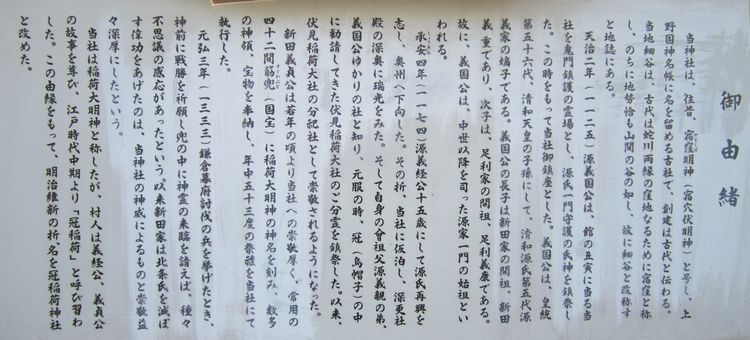 御由緒
当神社は、往昔、宿窪明神（宿穴伏明神）と号し、上
野国神名帳に名を留める古社で、創建は古代と伝わる。
当地細谷は、古代は蛇川両縁の窪地なるために宿窪と称
し、のちに地勢恰も山間の谷の如し、故に細谷と改称す
と地誌にある。
天治二年（一一二五）源義国公は、館の丑寅に当る当
社を鬼門鎮護の霊場とし、源氏一門守護の氏神を鎮祭し
た。この時をもって当社御鎮座とした。義国公は、皇統
第五十六代、清和天皇の子孫にして、清和源氏第五代源
義家の嫡子である。義国公の長子は新田家の開祖、新田
義重であり、次子は、足利家の開祖、足利義康である。
故に、義国公は、中世以降を司った源家一門の始祖とい
われる。
承安四年（一一七四）源義経公十五歳にして源氏再興を
志し、奥州へ下向した。その折、当社に仮泊し、深更社
殿の深奥に瑞光をみた。そして自身の曾祖父源義親の弟、
義国公ゆかりの社と知り、元服の時、冠（烏帽子）の中
に勧請してきた伏見稲荷大社のご分霊を鎮祭した。以来、
伏見稲荷大社の分祀社として崇敬されるようになった。
新田義貞公は若年の頃より当社への崇敬厚く、常用の
四十二間筋兜（国宝）に稲荷大明神の神名を刻み、数多
の神領、宝物を奉納し、年中五十三度の祭礼を当社にて
執行した。
元弘三年（一三三三）鎌倉幕府討伐の兵を挙げたとき、
神前に戦勝を祈願し兜の中に神霊の来臨を請えば、種々
不思議の感応があったという。以来新田家は北条氏を滅ぼ
す偉功をあげたのは、当神社の神威によるものと崇敬益
々深厚にしたという。
当社は稲荷大明神と称したが、村人は義経公、義貞公
の故事を尊び、江戸時代中期より「冠稲荷」と呼び習わ
した。この由縁をもって、明治維新の折、名を冠稲荷神社
と改めた。